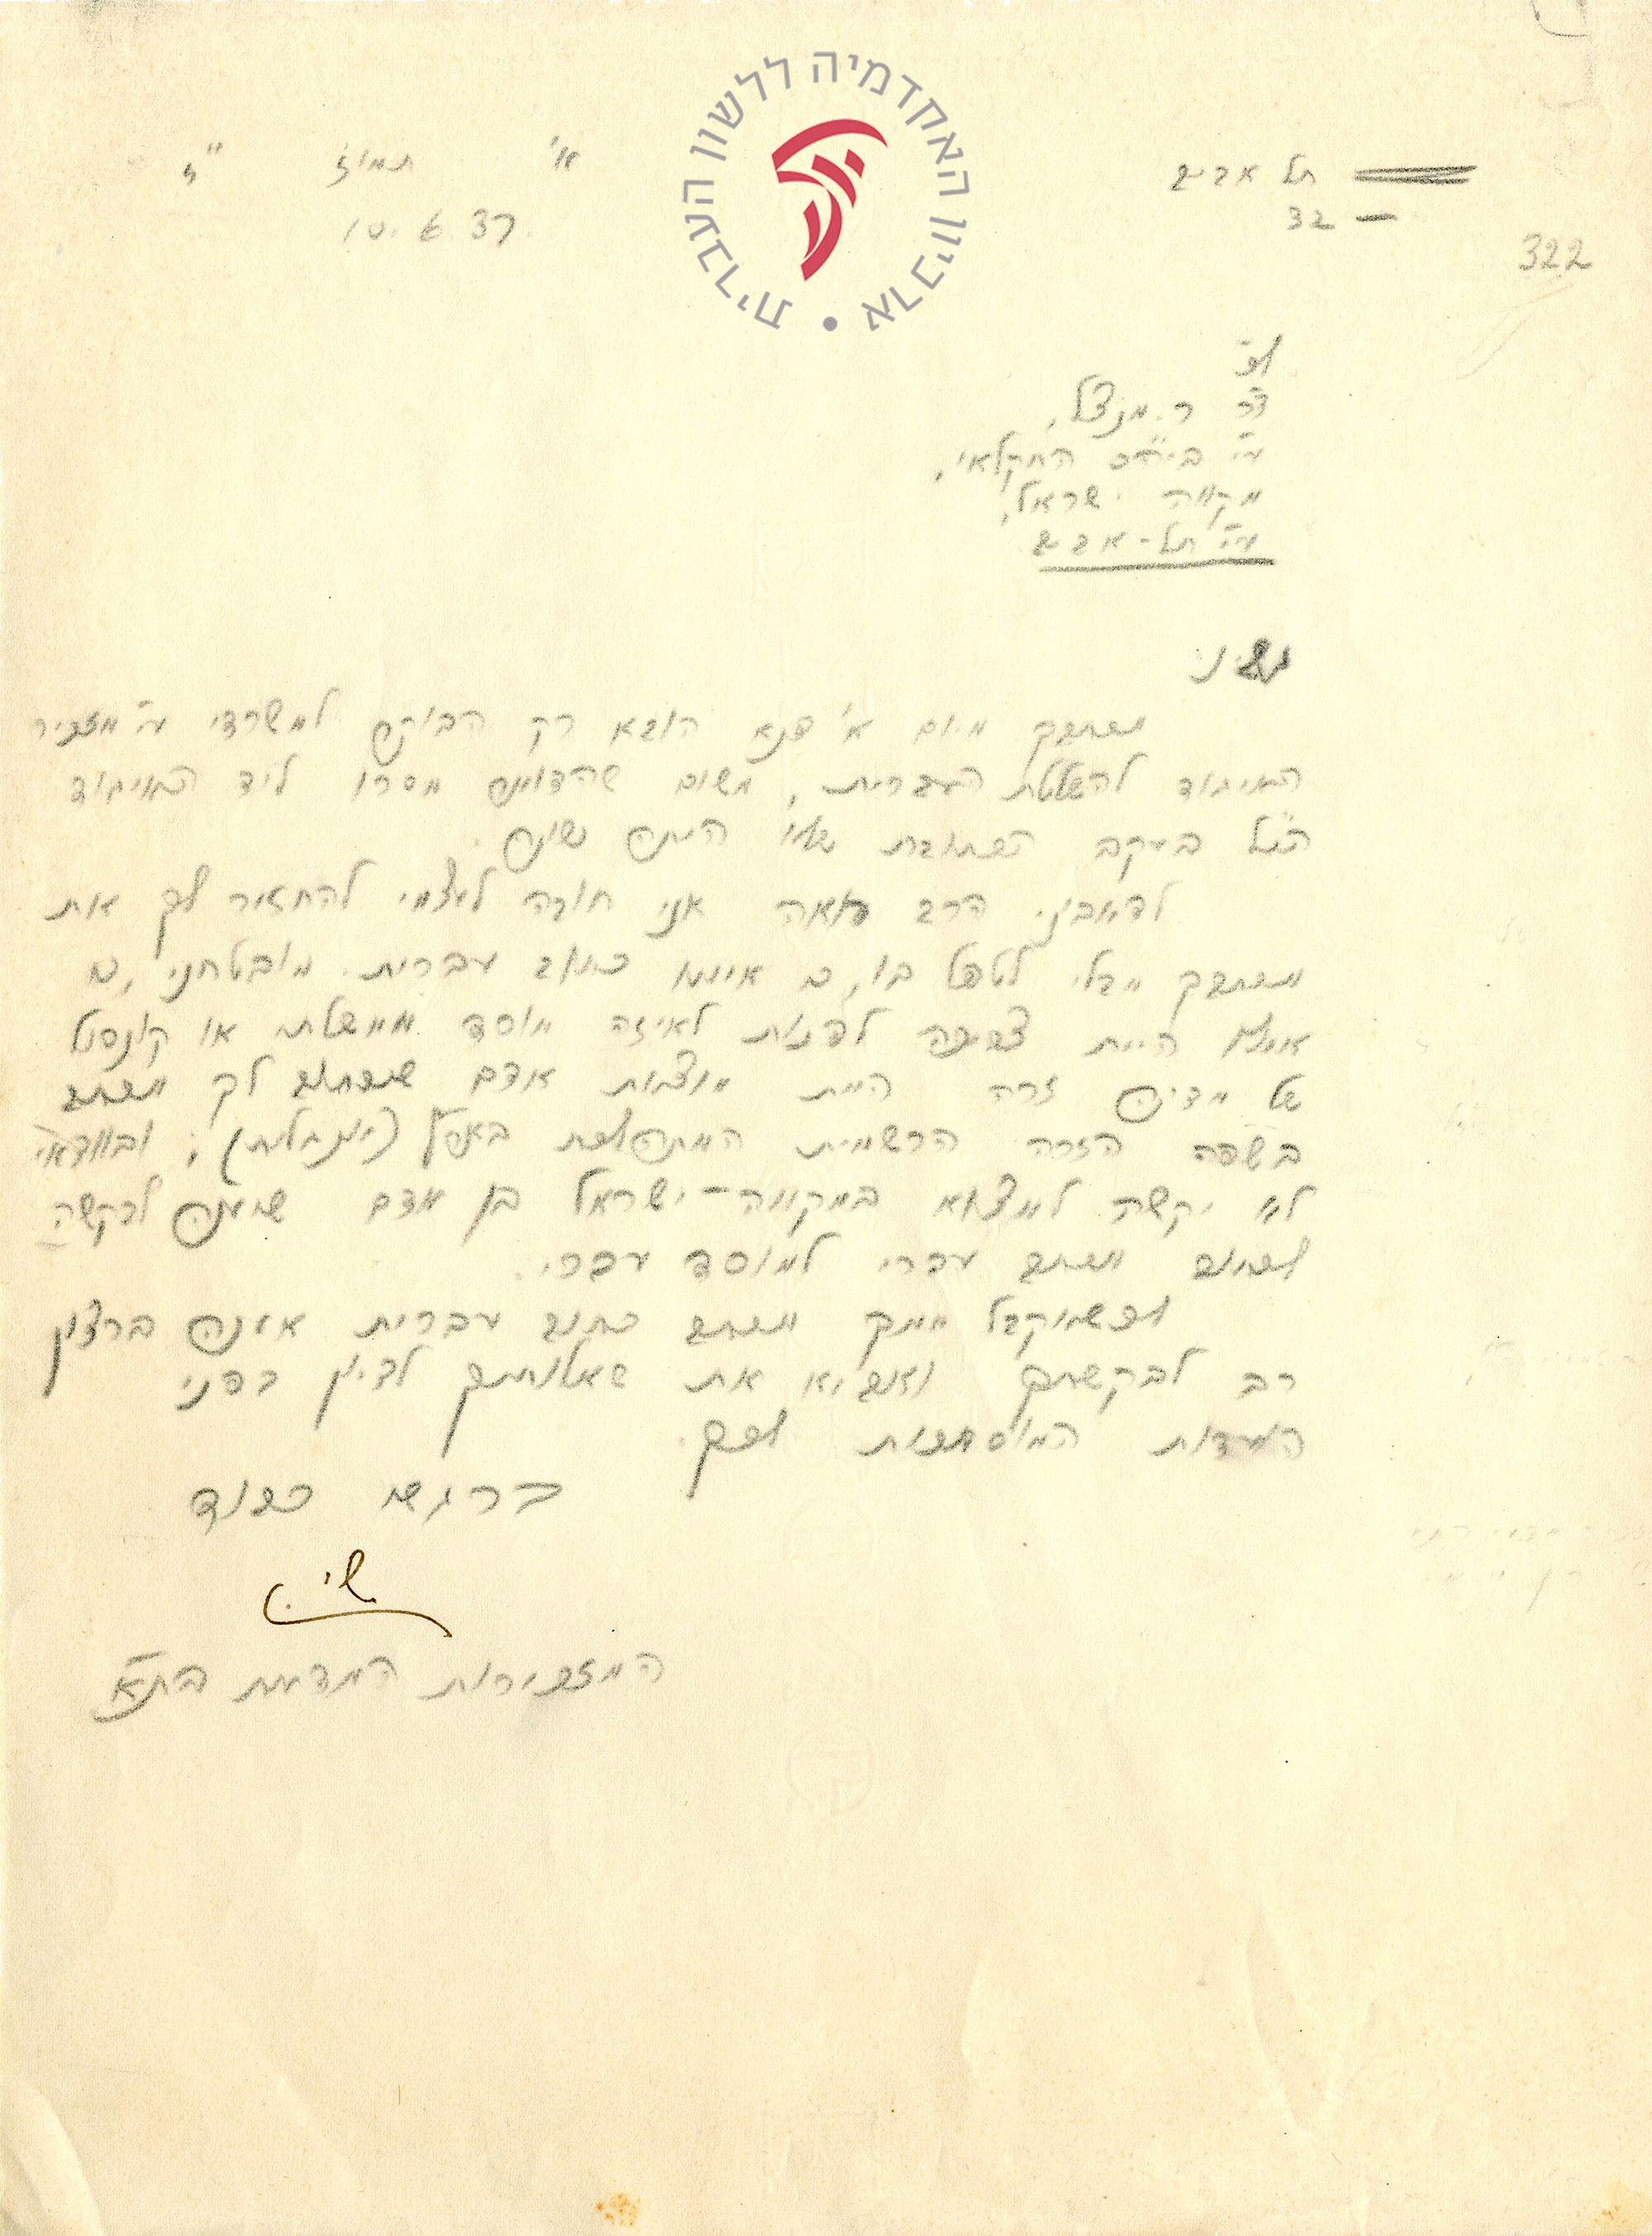 האקדמיה ללשון העברית • ארכיון
תל אביב
א' תמוז
32 —
10.6.37
322
לכ'
ד"ר ר. מנצל,
ע"י ביה"ס החקלאי,
מקווה ישראל,
ע"י תל-אביב
א.נ.
מכתבך מיום א' דנא הובא רק הבוקר למשרדי ע"י מזכיר
האיגוד להשלטת העברית, משום שהדואר מסרו ליד האיגוד
הנ"ל בעקב הכתובת שלא היתה נכונה.
לדאבוני הרב רואה אני חובה לעצמי להחזיר לך את
מכתבך מבלי לטפל בו, כי איננו כתוב עברית. מובטחני, כי
אילו היית צריכה לפנות לאיזה מוסד ממשלתי או קונסול
של מדינה זרה היית מוצאת אדם שיכתוב לך מכתב
בשפה הזרה הרשמית המתהלכת בארץ (אנגלית), ובוודאי
לא יקשה למצוא במקווה-ישראל בן אדם שיענה לבקשה
לכתוב מכתב עברי למוסד עברי.
לכשאקבל ממך מכתב כתוב עברית אענה ברצון
רב לבקשתך ואביא את שאלותיך לדיון בפני
הועדות המוסמכות לכך.
ברגשי כבוד
המזכירות המדעית בת"א